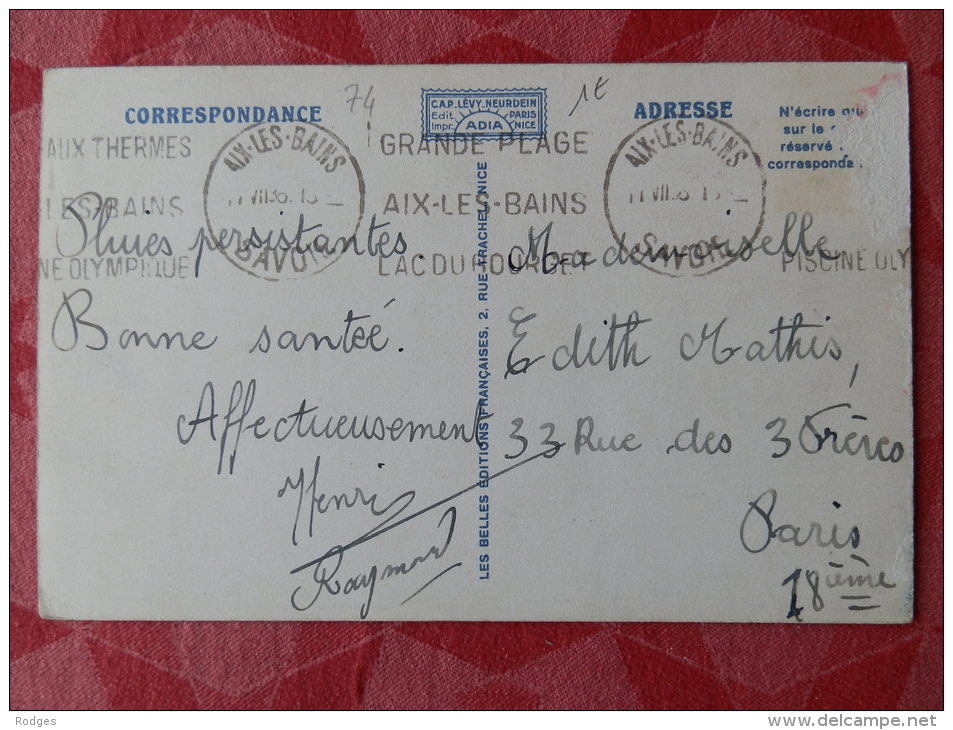 CORRESPONDANCE
74
C.A.P. LÉVY.NEURDEIN
Edit. PARIS
Impr. ADIA NICE
1€
ADRESSE
N'écrire que
sur le
réservé
corresponda
AUX THERMES
LES BAINS
NE OLYMPIQUE
AIX-LES-BAINS
SAVOIE
GRANDE PLAGE
AIX-LES-BAINS
LAC DU BOURGET
AIX-LES-BAINS
SAVOIE
PISCINE OLY
Pluies persistantes.
Bonne santéé.
Affectueusement
Henri
Raymond
LES BELLES EDITIONS FRANÇAISES, 2, RUE TRACHEL, NICE
Mademoiselle
Edith Mathis,
33 Rue des 3 Frères
Paris
18ième
Rodges
delcampe.net